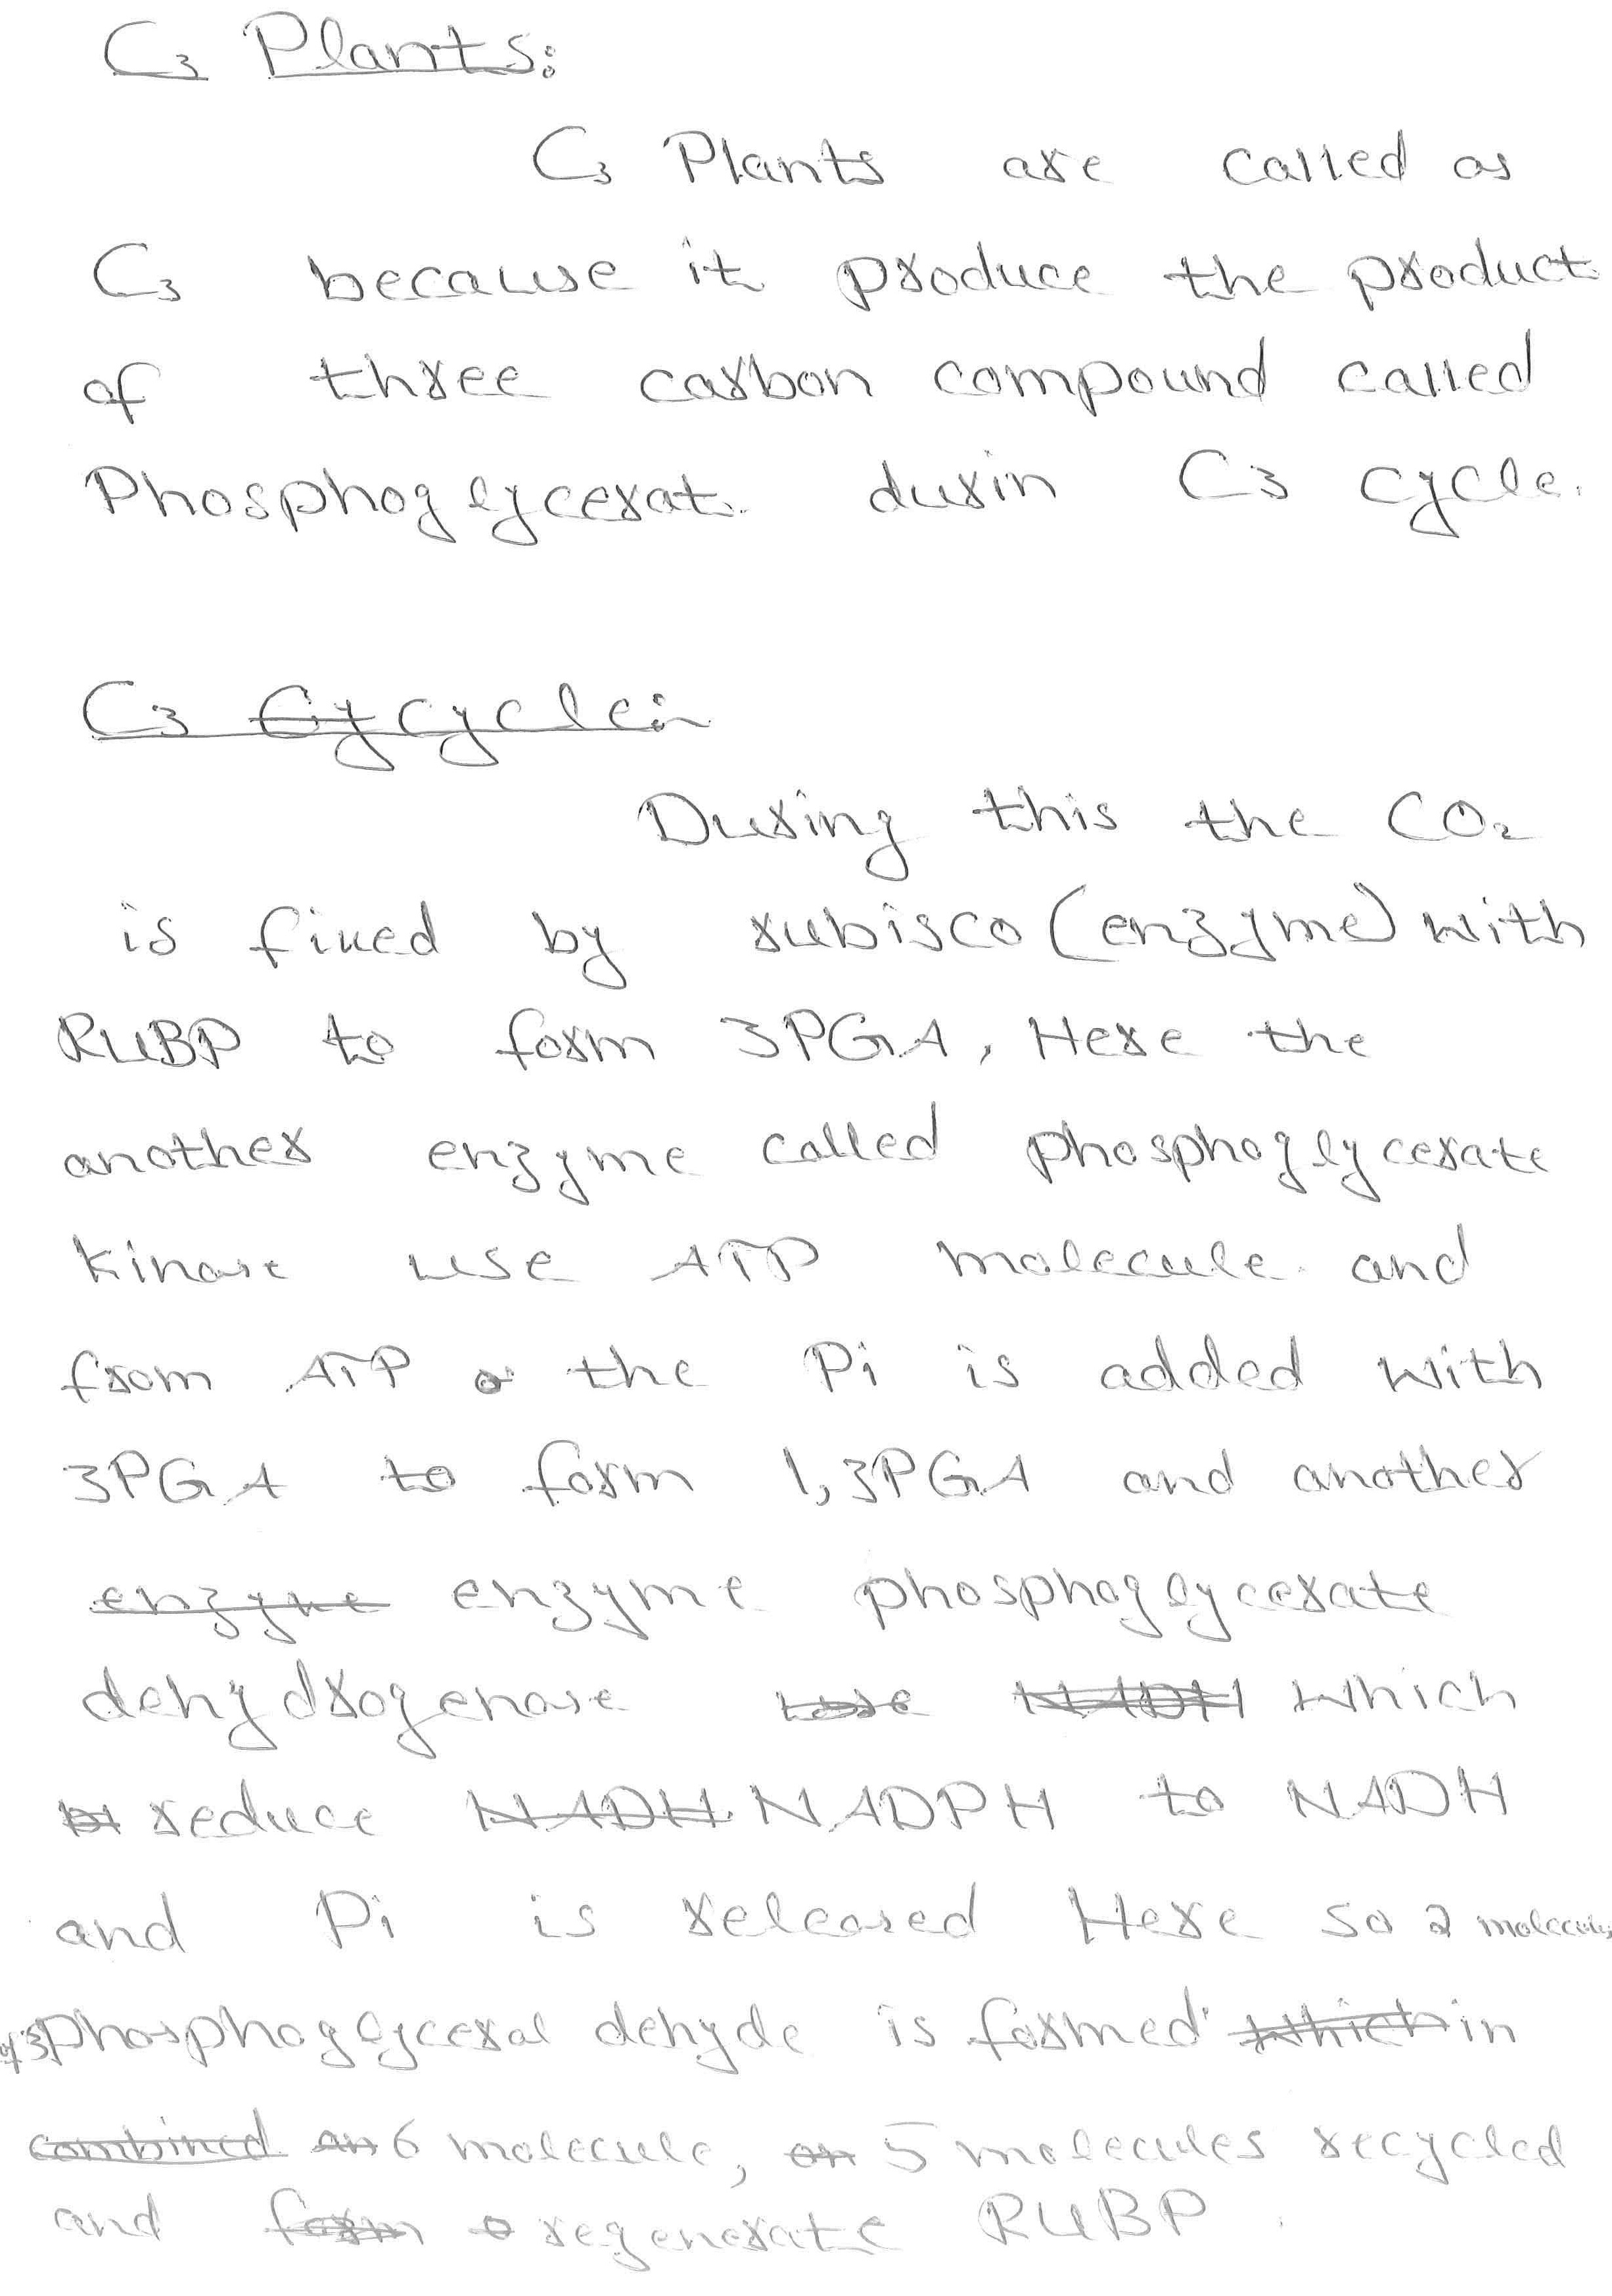 C3 Plants:
C3 Plants are called as
C3 because it produce the product
of three carbon compound called
Phosphoglycerat durin C3 cycle.
C3 Cy cycle:-
During this the CO2
is fixed by rubisco (enzyme) with
RUBP to form 3PGA, Here the
another enzyme called phosphoglycerate
kinase use ATP molecule and
from ATP the Pi is added with
3PGA to form 1,3PGA and another
enzyme enzyme phosphoglycerate
dehydrogenase use NADH which
reduce NADH NADPH to NADH
and Pi is released Here so 2 molecules
of 3phosphoglyceral dehyde is formed which in
combined an 6 molecule, on 5 molecules recycled
and form regenerate RUBP.